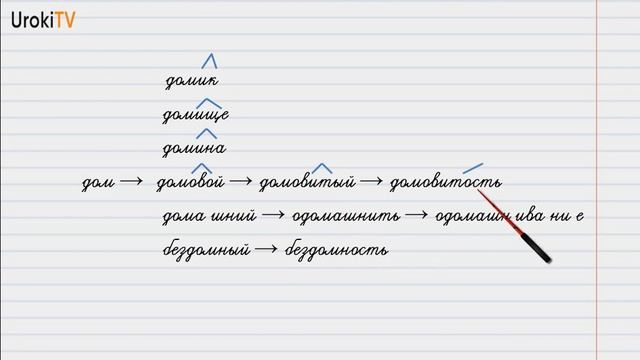 UrokiTV
домик
домище
домина
дом → домовой → домовитый → домовитость
дома шний → одомашнить → одомашн ива ни е
бездомный → бездомность